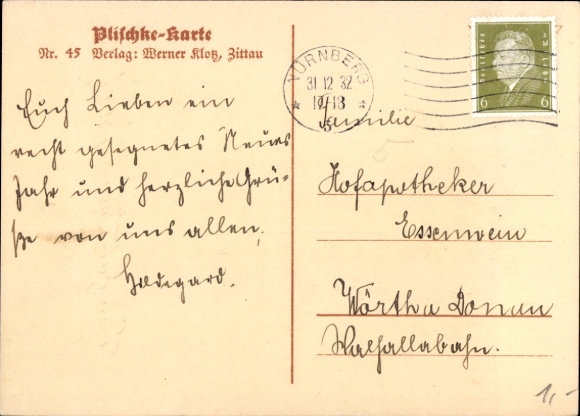 Plischke-Karte
Nr. 45 Verlag: Werner Klotz, Zittau
Euch Lieben ein
recht gesegnetes Neues
Jahr und herzliche Grü-
ße von uns allen.
Hildegard.
NÜRNBERG
31 12 32
17-18
5
Deutsches Reich
6 6
Familie
Hofapotheker
Essenwein
Wörth a Donau
Walhallabahn.
1,-